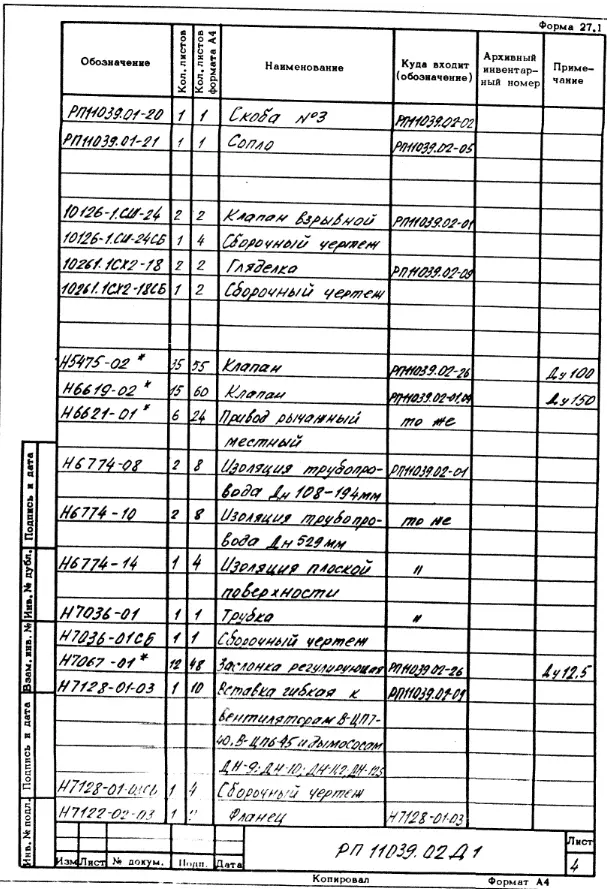 Форма 27.1
Обозначение Кол. листов Кол. листов формата А4 Наименование Куда входит (обозначение) Архивный инвентарный номер Примечание
РП11039.01-20 1 1 Скоба №3 РП11039.02-02
РП11039.01-21 1 1 Сопло РП11039.02-05
10126-1.СИ-24 2 2 Клапан взрывной РП11039.02-01
10126-1.СИ-24СБ 1 4 Сборочный чертеж
10261.1СХ2-18 2 2 Гляделка РП11039.02-09
10261.1СХ2-18СБ 1 2 Сборочный чертеж
Н5475-02 * 35 55 Клапан РП11039.02-26 Ду100
Н6619-02 * 15 60 Клапан РП11039.02-01,04 Ду150
Н6621-01 * 6 24 Привод рычажный то же
местный
Н6774-08 2 8 Изоляция трубопро- РП11039.02-01
вода Дн 108-194мм
Н6774-10 2 8 Изоляция трубопро- то же
вода Дн 529мм
Н6774-14 1 4 Изоляция плоской "
поверхности
Н7036-01 1 1 Трубка "
Н7036-01СБ 1 1 Сборочный чертеж
Н7067-01 * 12 48 Заслонка регулирующая РП11039.02-26 Ду12,5
Н7128-01-03 1 10 Вставка гибкая к РП11039.02-01
вентиляторам В-ЦП7-
40, В-ЦП6-45 и дымососам
ДН-9; ДН-10; ДН-11,2; ДН-12,5
Н7128-01-03СБ 1 4 Сборочный чертеж
Н7122-02-03 1 Фланец Н7128-01-03
Инв. № подл. Подпись и дата Взам. инв. № Инв. № дубл. Подпись и дата
РП 11039.02Д1
Лист
4
Изм Лист № докум. Подп. Дата
Копировал Формат А4